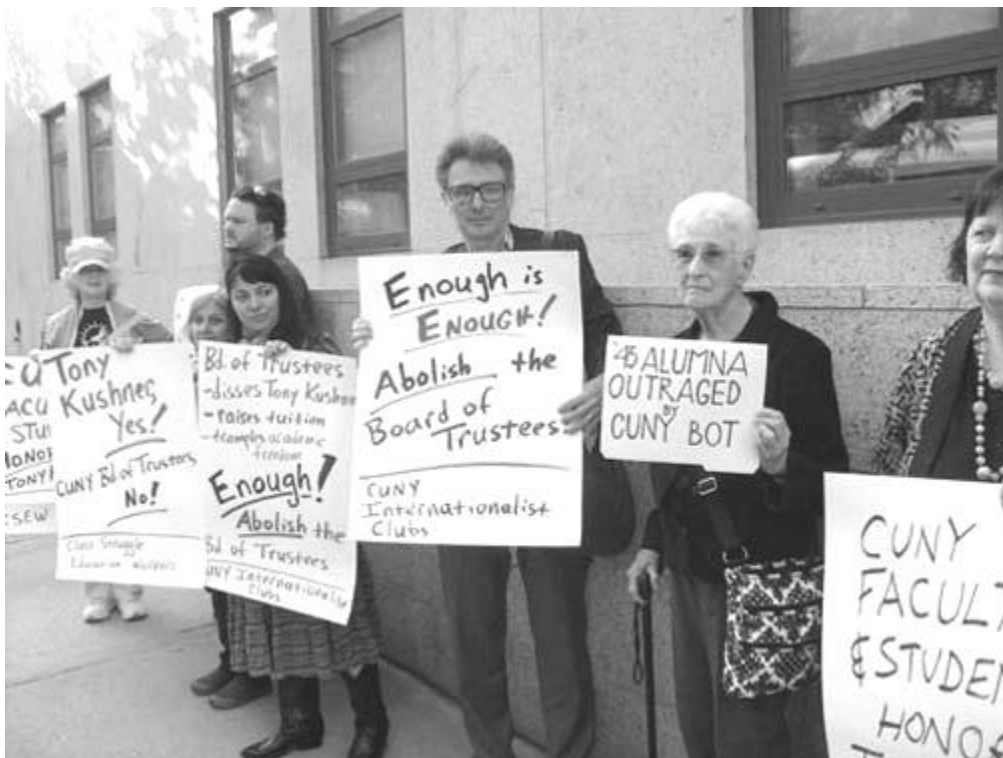 CU
ACU
STU
HONOR
TONY
CSEW
Tony
Kushner,
Yes!
CUNY Bd. of Trustees,
No!
Class Struggle
Education Workers
Bd. of Trustees
-disses Tony Kushner
-raises tuition
-tramples academic
freedom
Enough!
Abolish the
Bd. of Trustees
CUNY Internationalist
Clubs
Enough is
ENOUGH!
Abolish the
Board of
Trustees
CUNY
Internationalist
Clubs
'45 ALUMNA
OUTRAGED
BY
CUNY BOT
CUNY
FACULT
& STUDEN
HONOR
T